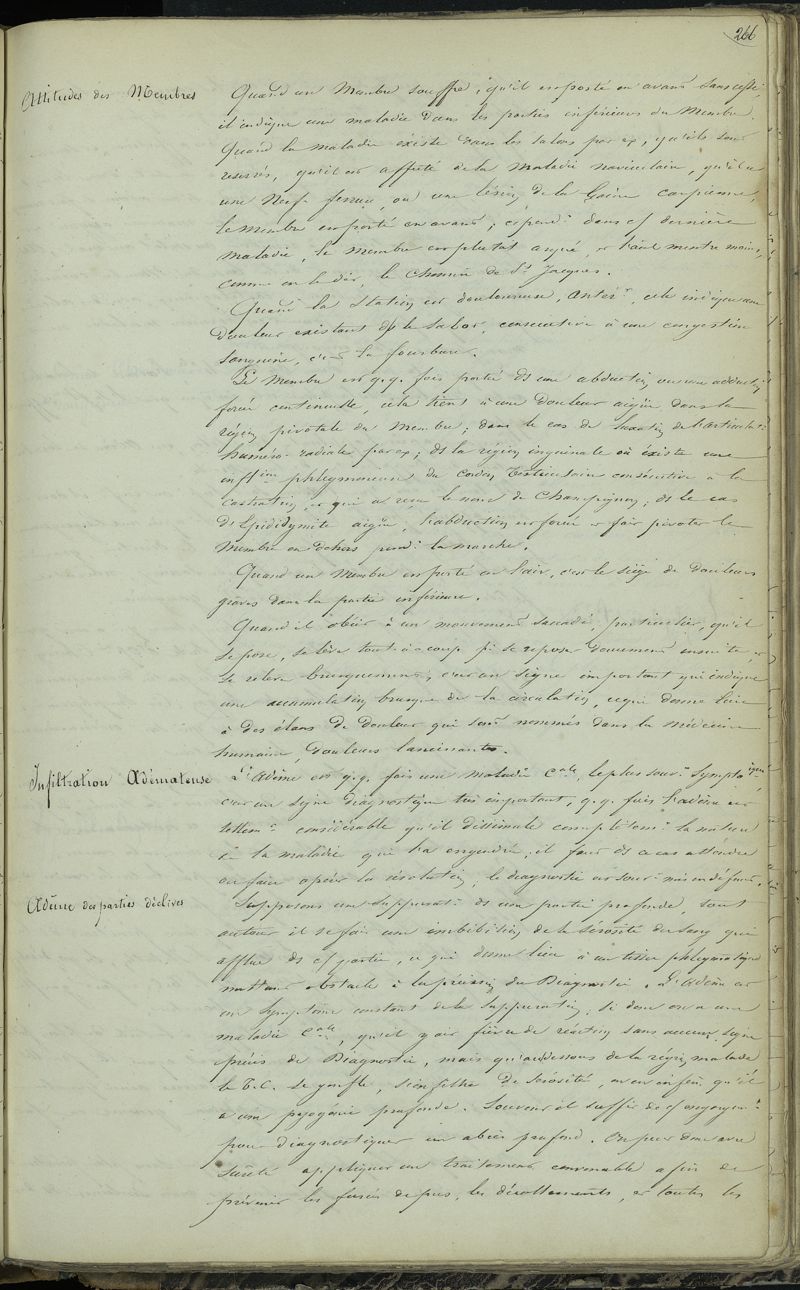 266
Attitudes des Membres
Quand un Membre souffre, qu'il est porté en avant sans cesse,
il indique une maladie dans les parties inférieures du Membre.
Quand la maladie existe dans les talons par ex, qu'ils sont
resserrés, qu'il est affecté de la maladie naviculaire, qu'il a
une Nerf ferrure, ou une lésion de la Gaine carpienne,
le membre est porté en avant; cepend.t dans c/ dernière
maladie, le membre est plutôt arqué, et l'aut montre moins,
comme on le dit, le chemin de St Jacques.
Quand la station est douloureuse, antér.re, cela indique une
douleur existant ds le sabot, consécutive à une congestion
sanguine, c'est la fourbure.
Le Membre est q.q. fois porté ds une abduction ou une adduction
forcée continuelle, cela tient à une douleur aigüe dans la
région pivotale du Membre; dans le cas de luxation de l'articulat.
huméro-radiale par ex; ds la région inguinale où existe une
inflam.tion phlegmoneuse du cordon testiculaire consécutive à la
castration, et qui a reçu le nom de Champignon; ds le cas
d'Epididymite aigüe, l'abduction est forcée et fait pivoter le
Membre en dehors pend.t la marche.
Quand un Membre est porté en l'air, c'est le siège de douleurs
graves dans la partie inférieure.
Quand il obéit à un mouvement saccadé, particulier, qu'il
se pose, se lève tout-à-coup se repose doucement ensuite, et
se relève brusquement, c'est un signe important qui indique
une accumulation brusque de la circulation, ce qui donne lieu
à des élans de douleur qui sont nommés dans la médecine
humaine, Douleurs lancinantes.
Infiltration Œdémateuse
L'œdème est q.q. fois une maladie C.ale, le plus souv.t symptomatique
c'est un signe diagnostique très important, q.q. fois l'œdème est
tellem.t considérable qu'il dissimule complètem.t la nature
de la maladie qui l'a engendrée; il faut ds ce cas attendre
ou faire opérer la résolution, le diagnostic est souv.t mis en défaut.
Œdème des parties déclives
Supposons une suppurat.n ds une partie profonde, tout
autour il se fait une imbibition de la sérosité du sang qui
afflue ds c/ partie, ce qui donne lieu à un tissu phlegmatique
mettant obstacle à la précision du Diagnostic. L'œdème est
un symptôme constant de la suppuration, si donc on a une
maladie C.ale, qu'il y ait fièvre de réaction sans aucun signe
précis de Diagnostic, mais qu'au dessous de la région malade
le T.C. se gonfle, s'infiltre de sérosité, on en infère qu'il
a une pyogénie profonde. Souvent il suffit de c/ engorgem.t
pour diagnostiquer un abcès profond. On peut donc avec
sûreté appliquer un traitement convenable afin de
prévenir les fusées de pus, les décollements, et toutes les